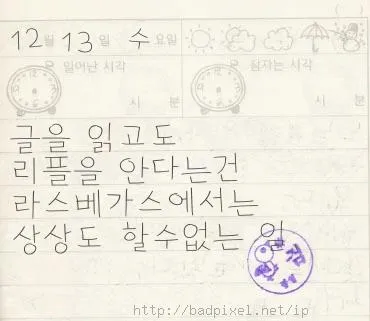 ( )
12월 13일 수요일
일어난 시각 잠자는 시각
시 분 시 분
글을 읽고도
리플을 안다는건
라스베가스에서는
상상도 할수없는 일
http://badpixel.net/ip